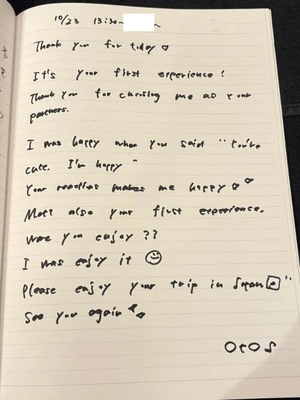 10/23 13:30~
Thank you for today
It's your first experience!
Thank you for choosing me as your
partners.
I was happy when you said "You're
cute. I'm happy"
Your reaction makes me happy
also your first experience.
were you enjoy??
I was enjoy it
Please enjoy your trip in Japan
See you again